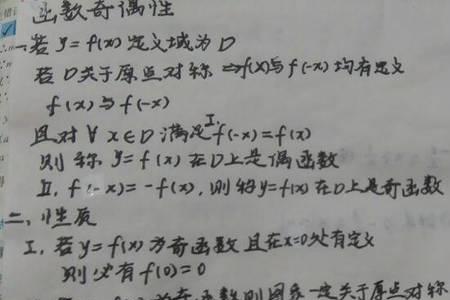 函数奇偶性
一、若 y=f(x) 定义域为 D
若 D关于原点对称 ⇒f(x)与 f(-x) 均有定义
f(x)与f(-x)
且对 ∀ x∈D 满足 I f(-x)=f(x)
则称 y=f(x) 在D上是偶函数
II. f(-x)=-f(x), 则称y=f(x) 在D上是奇函数
二、性质
I. 若 y=f(x) 为奇函数 且在x=0处有定义
则必有 f(0)=0
奇函数则图象一定关于原点对称